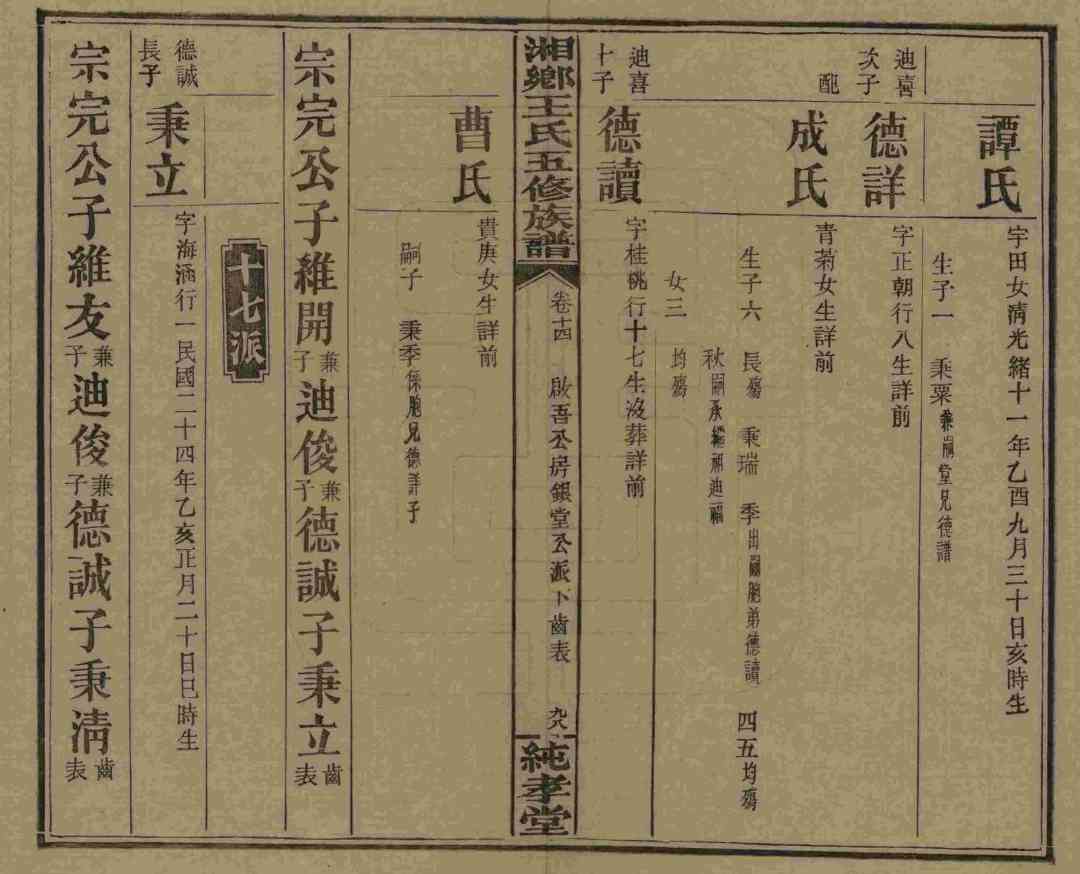 譚氏
字田女清光緒十一年乙酉九月三十日亥時生
生子一 秉粟兼嗣堂兄德譜
迪喜次子
德詳
字正朝行八生詳前
配
成氏
青菊女生詳前
生子六 長殤 秉瑞 季出嗣胞弟德讀 四五均殤
秋嗣承繼祖迪福
女三 均殤
迪喜十子
德讀
字桂桃行十七生沒葬詳前
湘鄉王氏五修族譜
卷十四 啟吾公房銀堂公派下齒表 九八
純孝堂
曹氏
貴庚女生詳前
嗣子 秉季係胞兄德詳子
宗完公子維開兼子迪俊兼子德誠子秉立齒表
十七派
德誠長子
秉立
字海涵行一民國二十四年乙亥正月二十日巳時生
宗完公子維友兼子迪俊兼子德誠子秉清齒表